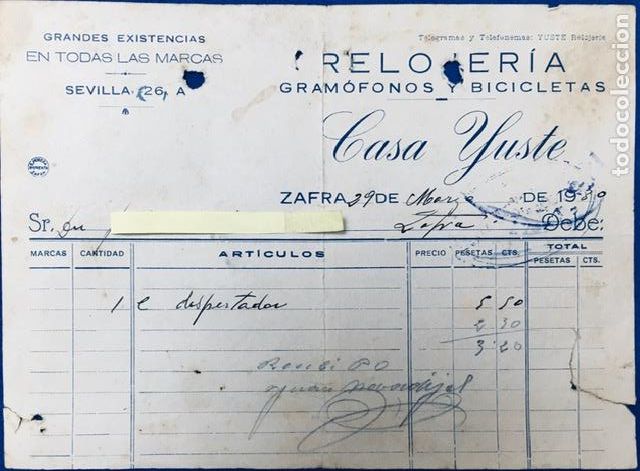 GRANDES EXISTENCIAS
EN TODAS LAS MARCAS
SEVILLA, 26, A
Telegramas y Telefonemas: YUSTE Relojería
RELOJERÍA
GRAMÓFONOS Y BICICLETAS
Casa Yuste
ZAFRA 29 DE Marzo DE 1930
Sr. Dn
Zafra Debe:
MARCAS CANTIDAD ARTÍCULOS PRECIO PESETAS CTS. TOTAL PESETAS CTS.
1 despertador 5 50
2 30
3 20
Recibí
todocoleccion